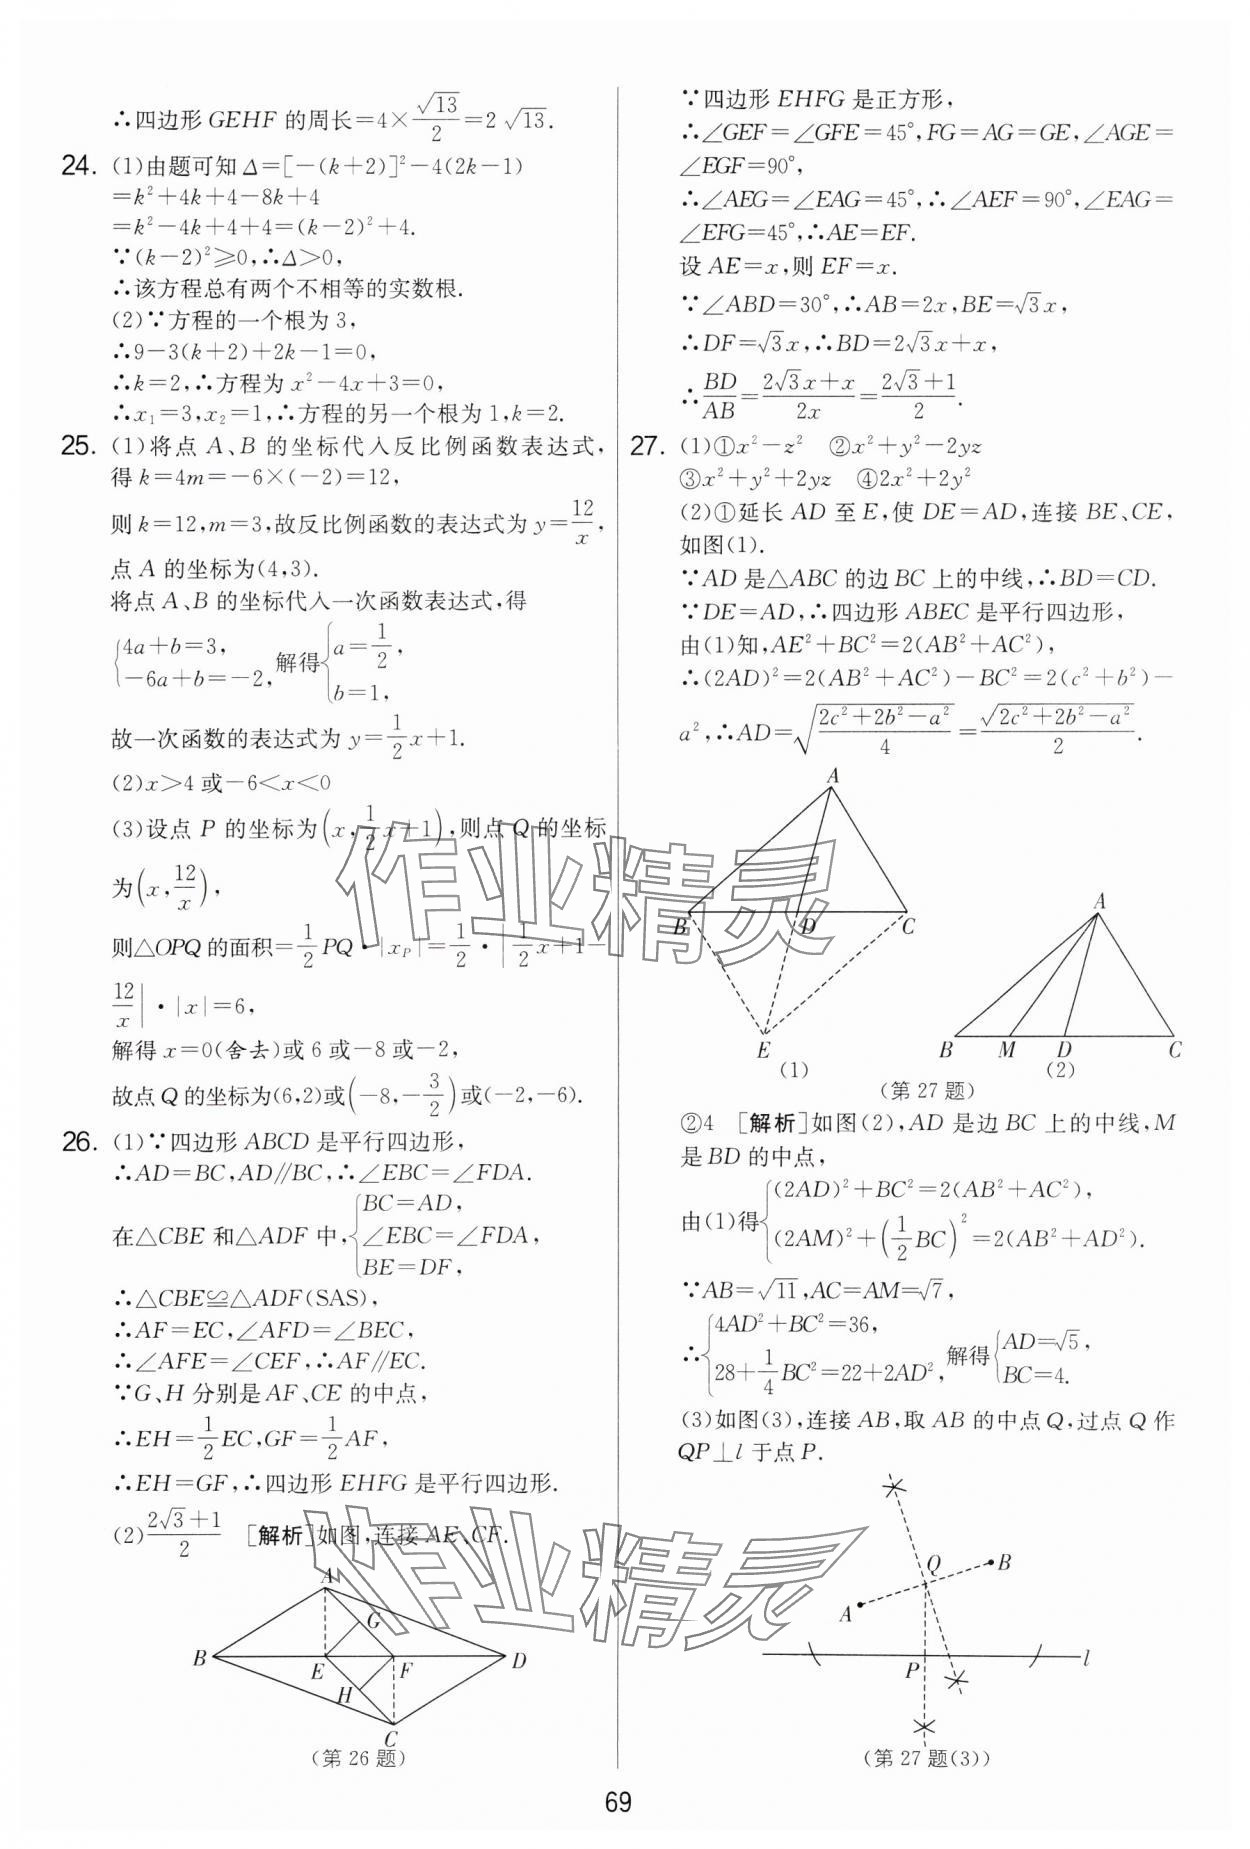 ∴四边形 GEHF 的周长=4×√13/2=2√13.
24. (1)由题可知 Δ=[-(k+2)]²-4(2k-1)
=k²+4k+4-8k+4
=k²-4k+4+4=(k-2)²+4.
∵(k-2)²≥0,∴Δ>0,
∴该方程总有两个不相等的实数根.
(2)∵方程的一个根为 3,
∴9-3(k+2)+2k-1=0,
∴k=2,∴方程为 x²-4x+3=0,
∴x₁=3,x₂=1,∴方程的另一个根为 1,k=2.
25. (1)将点 A、B 的坐标代入反比例函数表达式,
得 k=4m=-6×(-2)=12,
则 k=12,m=3,故反比例函数的表达式为 y=12/x,
点 A 的坐标为(4,3).
将点 A、B 的坐标代入一次函数表达式,得
{4a+b=3, -6a+b=-2, 解得{a=1/2, b=1,
故一次函数的表达式为 y=1/2x+1.
(2)x>4 或-6<x<0
(3)设点 P 的坐标为(x,1/2x+1),则点 Q 的坐标
为(x,12/x),
则△OPQ 的面积=1/2PQ·|xₚ|=1/2·|1/2x+1-
12/x|·|x|=6,
解得 x=0(舍去)或 6 或-8 或-2,
故点 Q 的坐标为(6,2)或(-8,-3/2)或(-2,-6).
26. (1)∵四边形 ABCD 是平行四边形,
∴AD=BC,AD∥BC,∴∠EBC=∠FDA.
在△CBE 和△ADF 中,{BC=AD, ∠EBC=∠FDA, BE=DF,
∴△CBE≌△ADF(SAS),
∴AF=EC,∠AFD=∠BEC,
∴∠AFE=∠CEF,∴AF∥EC.
∵G、H 分别是 AF、CE 的中点,
∴EH=1/2EC,GF=1/2AF,
∴EH=GF,∴四边形 EHFG 是平行四边形.
(2)(2√3+1)/2 [解析]如图,连接 AE、CF.
A
G
B
E
F
D
H
C
(第 26 题)
∵四边形 EHFG 是正方形,
∴∠GEF=∠GFE=45°,FG=AG=GE,∠AGE=
∠EGF=90°,
∴∠AEG=∠EAG=45°,∴∠AEF=90°,∠EAG=
∠EFG=45°,∴AE=EF.
设 AE=x,则 EF=x.
∵∠ABD=30°,∴AB=2x,BE=√3x,
∴DF=√3x,∴BD=2√3x+x,
∴BD/AB=(2√3x+x)/2x=(2√3+1)/2.
27. (1)①x²-z² ②x²+y²-2yz
③x²+y²+2yz ④2x²+2y²
(2)①延长 AD 至 E,使 DE=AD,连接 BE、CE,
如图(1).
∵AD 是△ABC 的边 BC 上的中线,∴BD=CD.
∵DE=AD,∴四边形 ABEC 是平行四边形,
由(1)知,AE²+BC²=2(AB²+AC²),
∴(2AD)²=2(AB²+AC²)-BC²=2(c²+b²)-
a²,∴AD=√((2c²+2b²-a²)/4)=√(2c²+2b²-a²)/2.
A
B
D
C
E
(1)
A
B
M
D
C
(2)
(第 27 题)
②4 [解析]如图(2),AD 是边 BC 上的中线,M
是 BD 的中点,
由(1)得{(2AD)²+BC²=2(AB²+AC²), (2AM)²+(1/2BC)²=2(AB²+AD²).
∵AB=√11,AC=AM=√7,
∴{4AD²+BC²=36, 28+1/4BC²=22+2AD², 解得{AD=√5, BC=4.
(3)如图(3),连接 AB,取 AB 的中点 Q,过点 Q 作
QP⊥l 于点 P.
Q
B
A
P
l
(第 27 题(3))
69
作业精灵
作业精灵